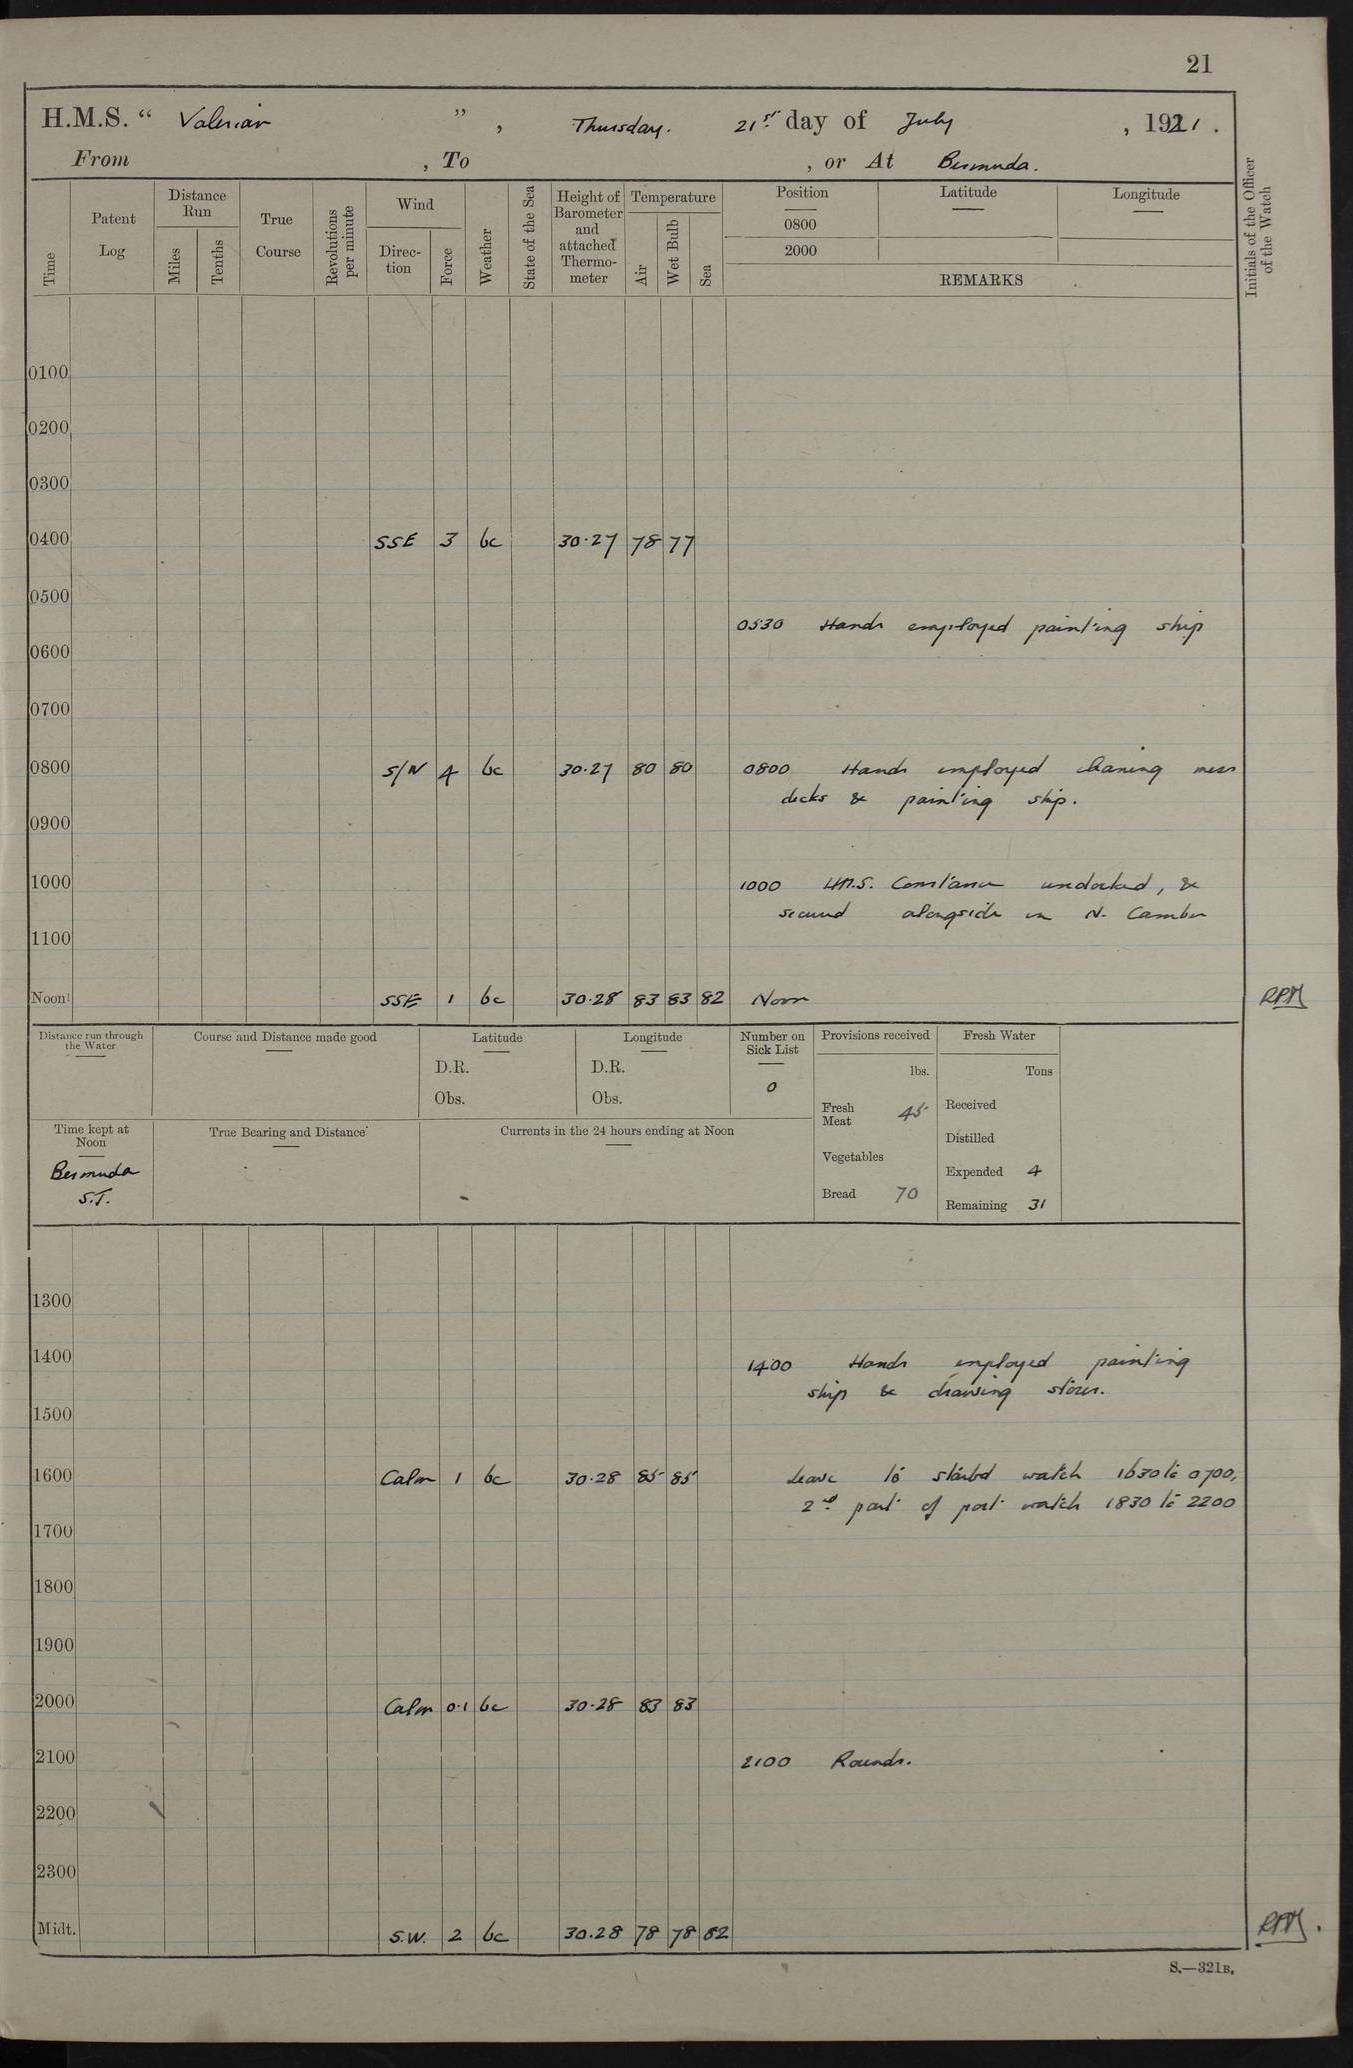 21
H.M.S. " Valerian ", Thursday. 21st day of July, 1921.
From , To , or At Bermuda.
Time
Patent Log
Distance Run
Miles
Tenths
True Course
Revolutions per minute
Wind
Direction
Force
Weather
State of the Sea
Height of Barometer and attached Thermometer
Temperature
Air
Wet Bulb
Sea
Position Latitude Longitude
0800
2000
REMARKS
Initials of the Officer of the Watch
0100
0200
0300
0400 SSE 3 bc 30.27 78 77
0500
0530 Hands employed painting ship
0600
0700
0800 4 bc 30.27 80 80 0800 Hands employed cleaning mess
decks & painting ship.
0900
1000 1000 H.M.S. Constance undocked, &
secured alongside in N. Camber
1100
Noon SSE 1 bc 30.28 83 83 82 Noon RPM
Distance run through the Water
Course and Distance made good
Latitude
D.R.
Obs.
Longitude
D.R.
Obs.
Number on Sick List
0
Provisions received
lbs.
Fresh Meat 45
Vegetables
Bread 70
Fresh Water
Tons
Received
Distilled
Expended 4
Remaining 31
Time kept at Noon
Bermuda
S.T.
True Bearing and Distance
Currents in the 24 hours ending at Noon
1300
1400 1400 Hands employed painting
ship & drawing stores.
1500
1600 Calm 1 bc 30.28 85 85 Leave to starbd watch 1630 to 0700,
2nd part of port watch 1830 to 2200
1700
1800
1900
2000 Calm 0.1 bc 30.28 83 83
2100 2100 Rounds.
2200
2300
Midt. S.W. 2 bc 30.28 78 78 82 RPM.
S.—321B.